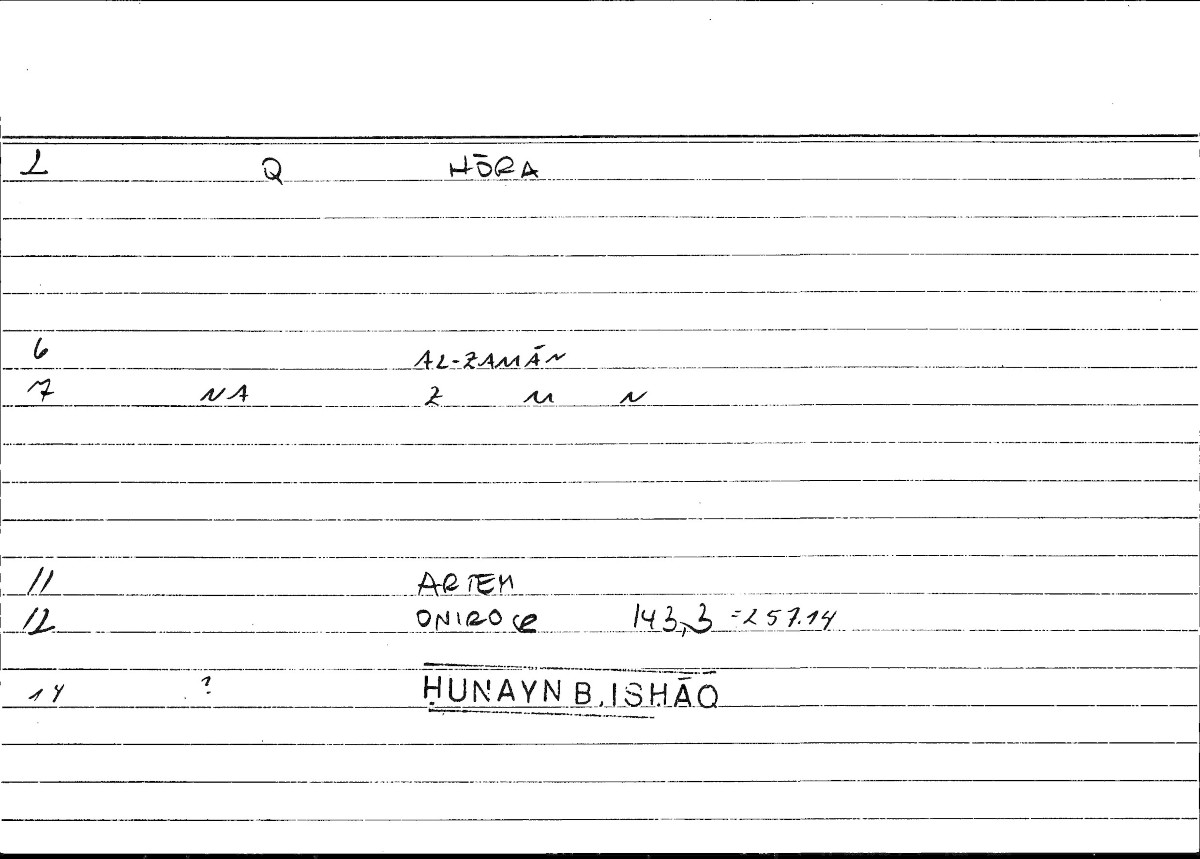 2 Q HŌRA
6 AL-ZAMĀN
7 NA Z M N
11 ARTEM
12 ONIROCR 143,3 = 257.14
14 ? ḤUNAYN B. ISḤĀQ